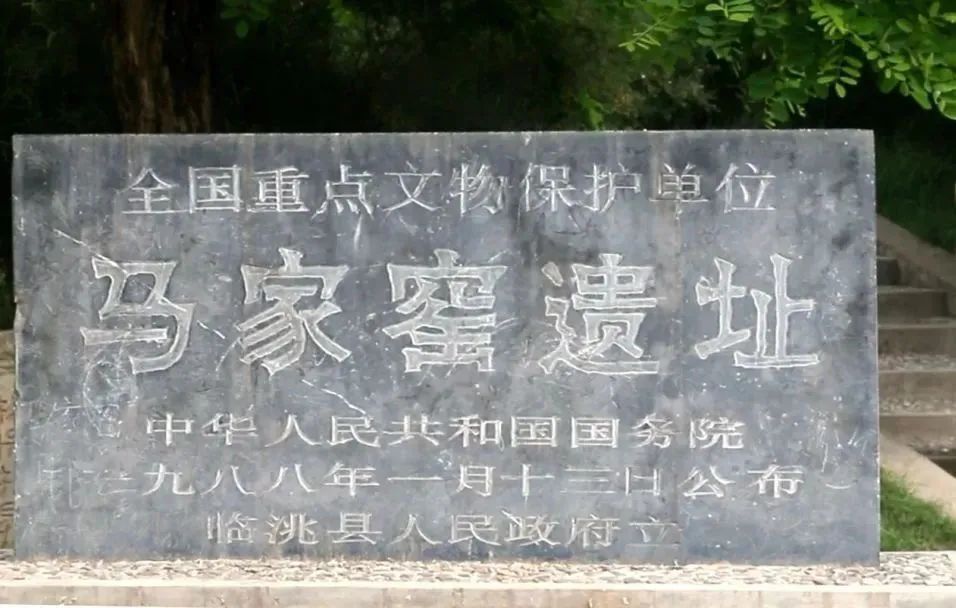 全国重点文物保护单位
马家窑遗址
中华人民共和国国务院
一九八八年一月十三日公布
临洮县人民政府立